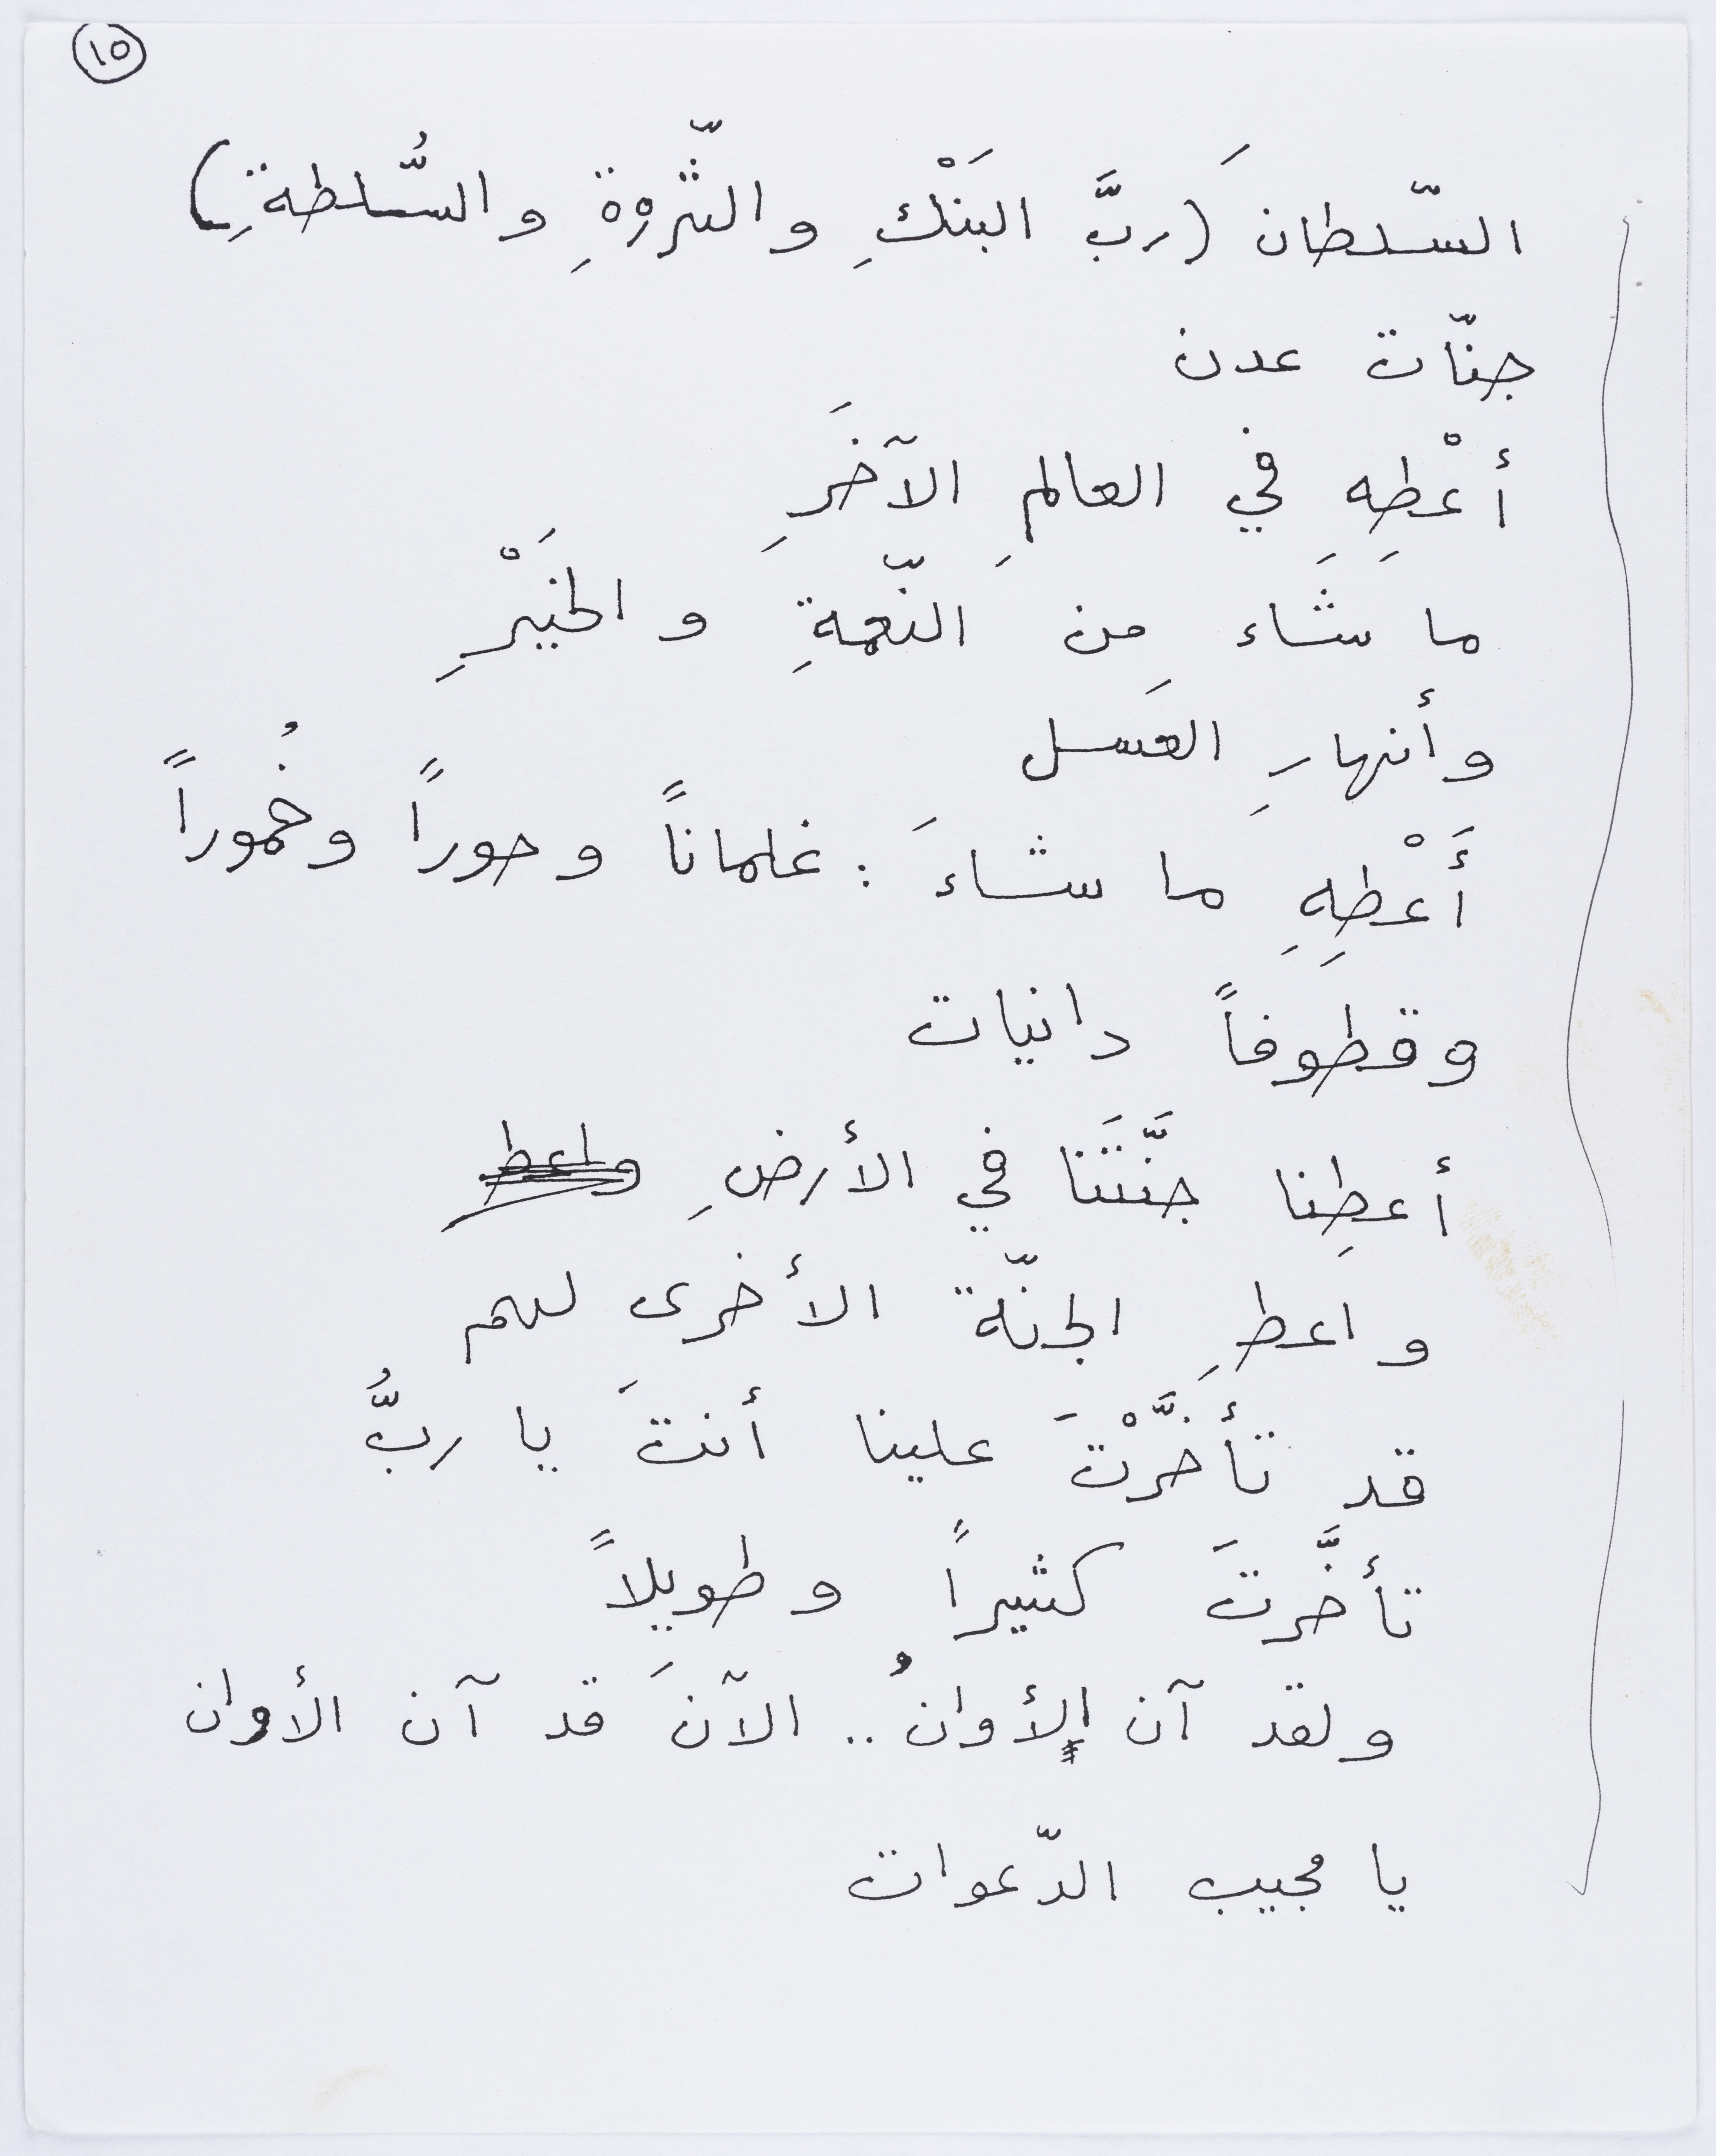 ١٥
السّلطانَ (ربَّ البَنْكِ والثّروةِ والسُّلطةِ)
جنّات عدن
أعْطِهِ في العالمِ الآخَرِ
ما شَاء مِن النّعمةِ والخَيْرِ
وأنهارِ العَسل
أَعْطِهِ ما شاءَ : غلماناً وحوراً وخُموراً
وقطوفاً دانيات
أعطِنا جنَّتَنا في الأرضِ واعط
واعطِ الجنّة الأخرى لهم
قد تأخَّرْتَ علينا أنتَ يا ربُّ
تأخَّرتَ كثيراً وطويلاً
ولقد آن الأوانُ .. الآنَ قد آن الأوان
يا مجيب الدّعوات